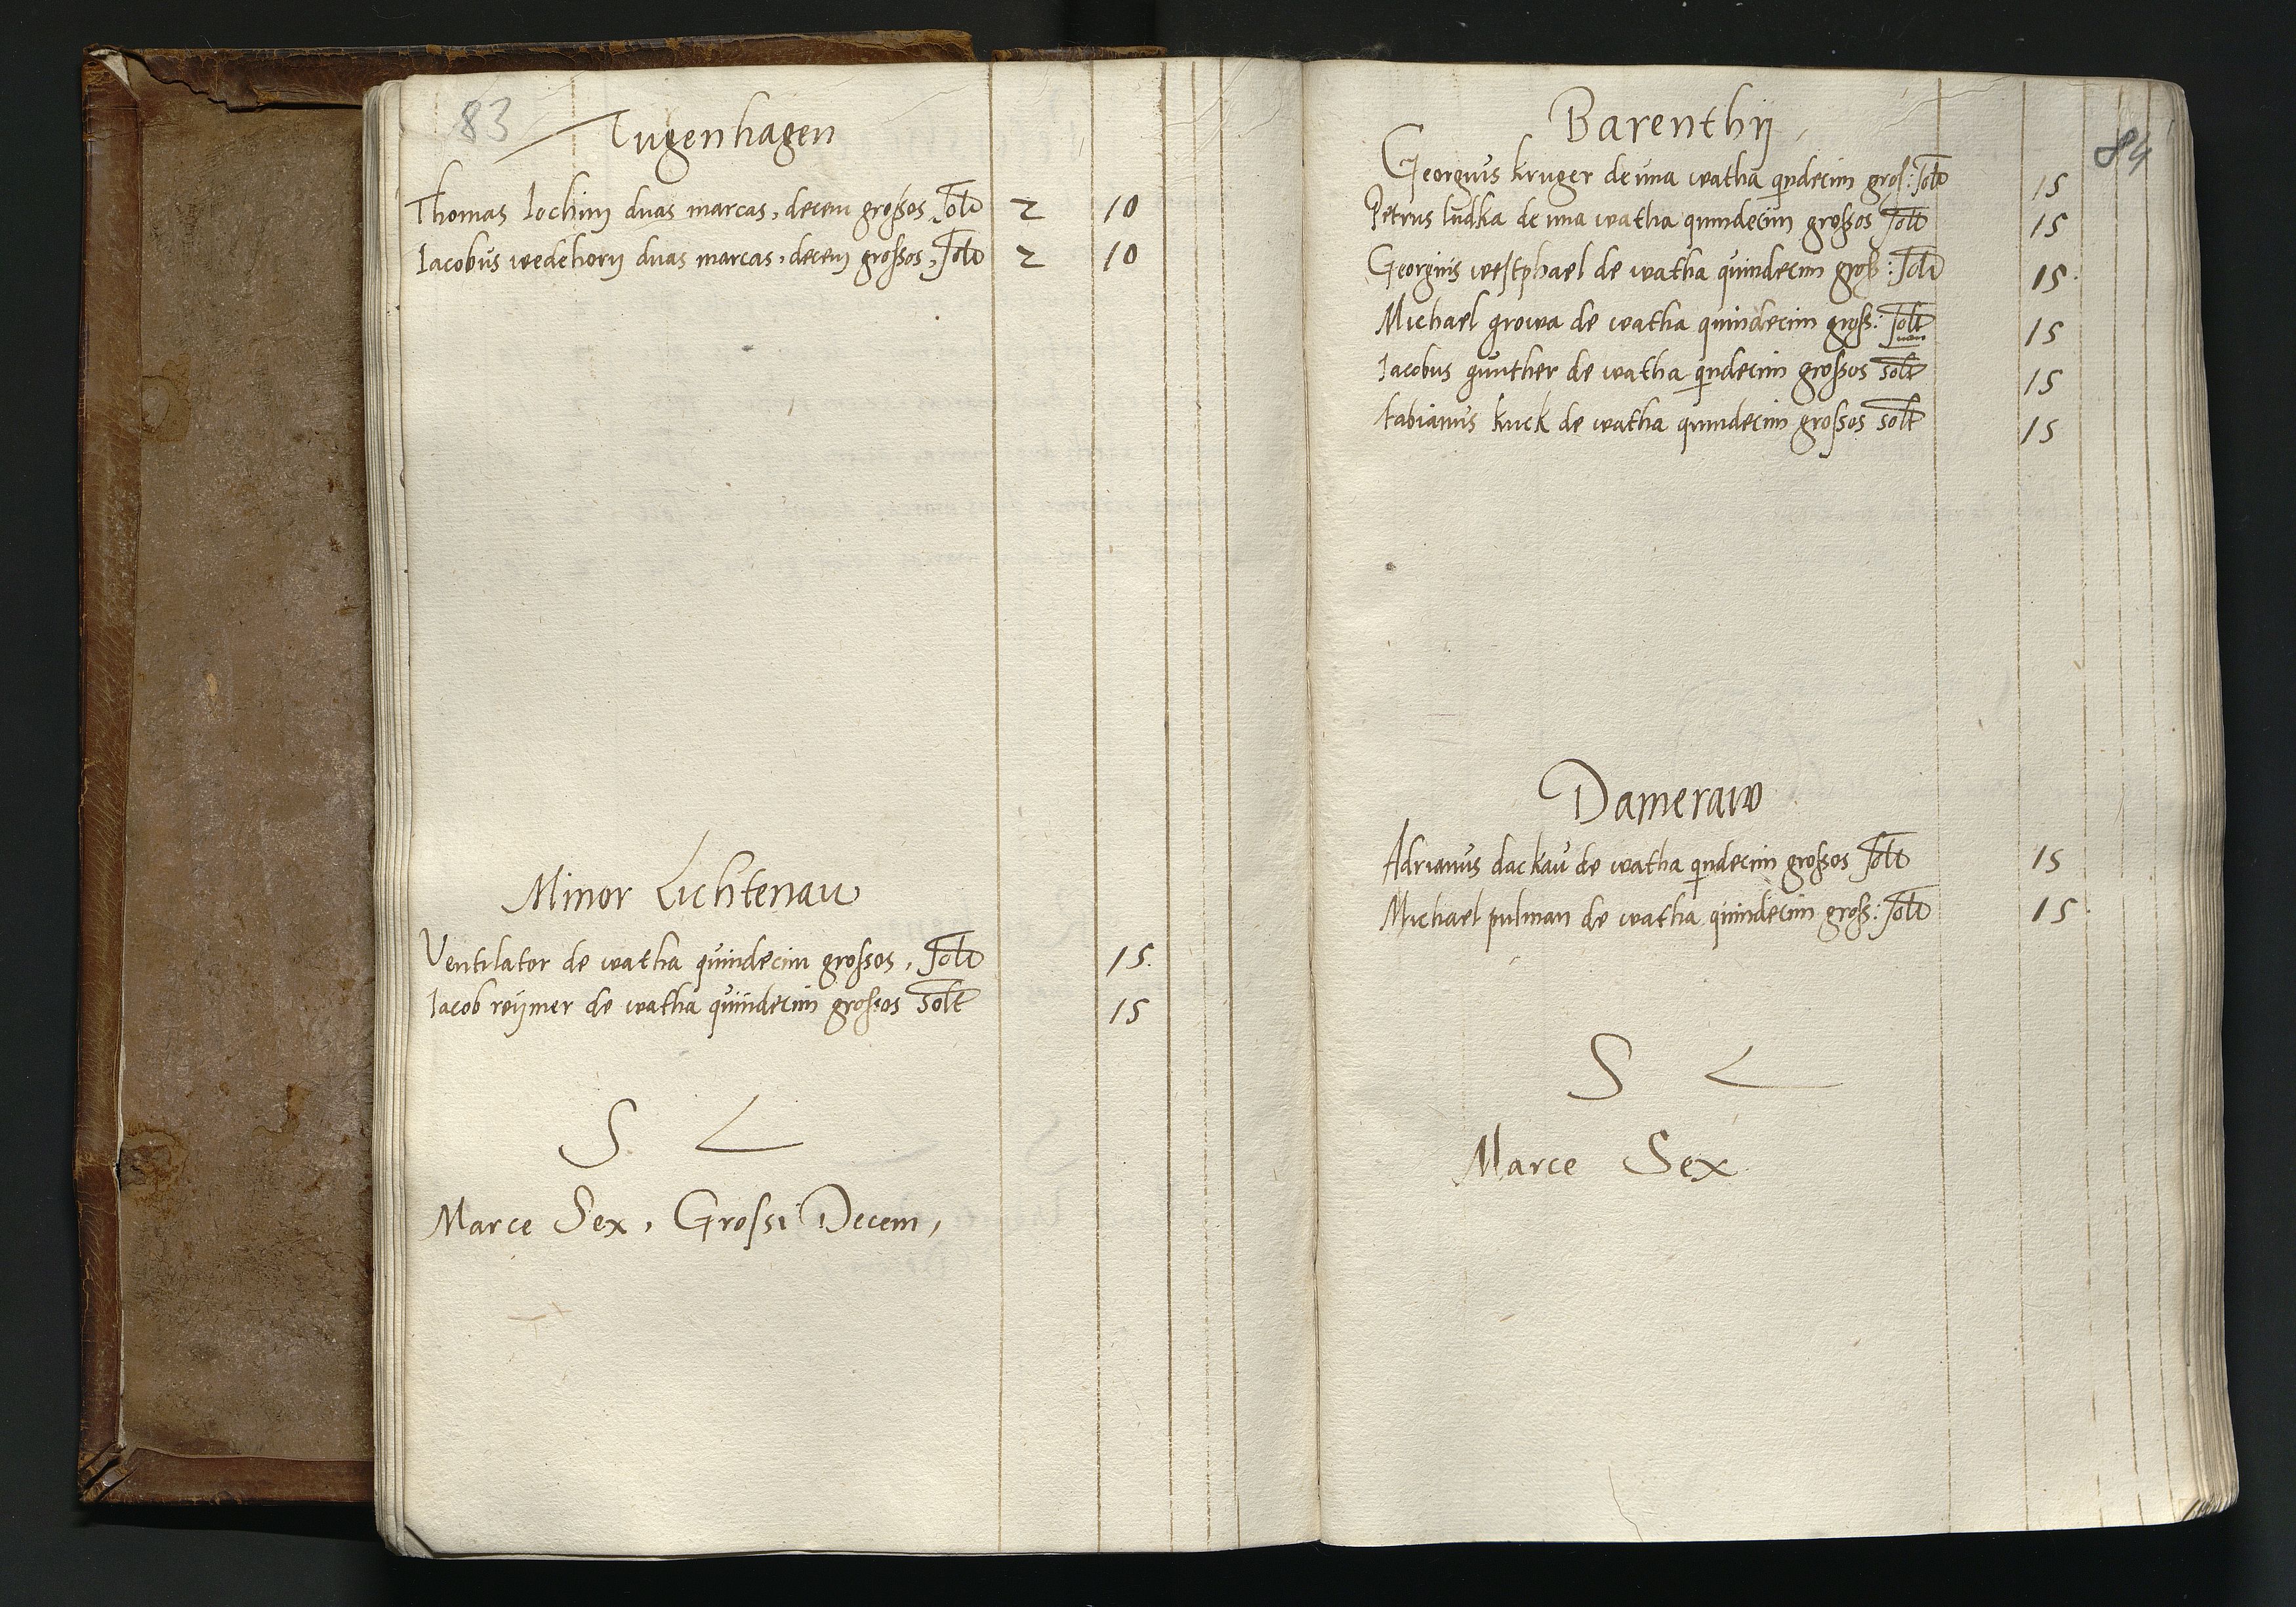 83
Tugenhagen
Thomas Iochim duas marcas, decem grossos, solt 2 10
Iacobus wedehorn duas marcas, decem grossos, solt 2 10
Minor Lichtenau
Ventilator de watha quindecim grossos, solt 15
Iacob reijmer de watha quindecim grossos solt 15
S
Marce Sex, Grossi Decem,
84
Barenthij
Georgius kruger de una watha qindecim gros: solt 15
Petrus ludka de una watha quindecim grossos solt 15
Georgius westphael de watha quindecim gross: solt 15
Michael growa de watha quindecim gross: solt 15
Iacobus gunther de watha qindecim grossos solt 15
Fabianus kuck de watha quindecim grossos solt 15
Dameraw
Adrianus dackau de watha qindecim grossos solt 15
Michael pulman de watha quindecim gross: solt 15
S
Marce Sex